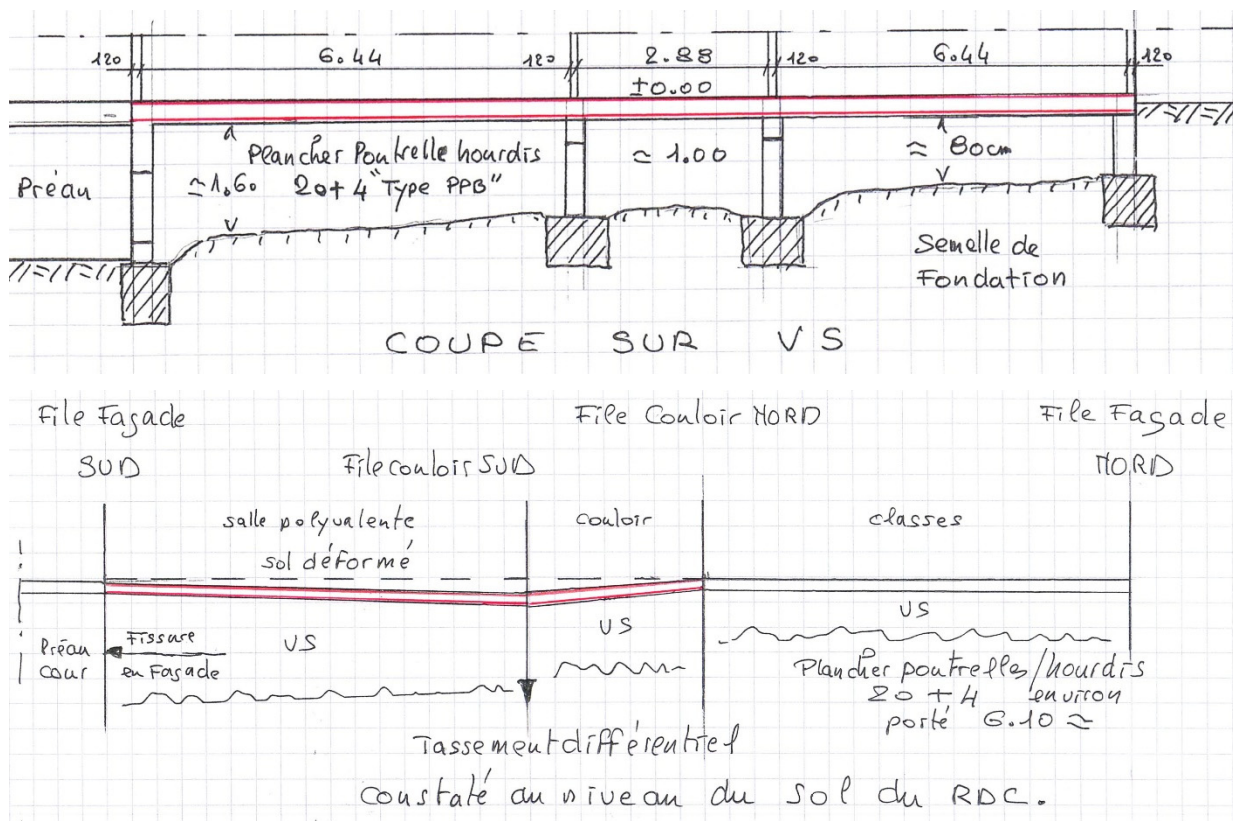 120 6.44 120 2.88 120 6.44 120
±0.00
Plancher Poutrelle hourdis
≃ 1.60 20+4 "Type PPB"
≃ 1.00
≈ 80cm
Préau
Semelle de
Fondation
COUPE SUR VS
File Façade
SUD
File couloir SUD
File Couloir NORD
File Façade
NORD
salle polyvalente
sol déformé
couloir
classes
Préau
cour
Fissure
en Façade
VS
VS
VS
Plancher poutrelles/hourdis
20 + 4 environ
porté 6.10 ≃
Tassement différentiel
constaté au niveau du sol du RDC.